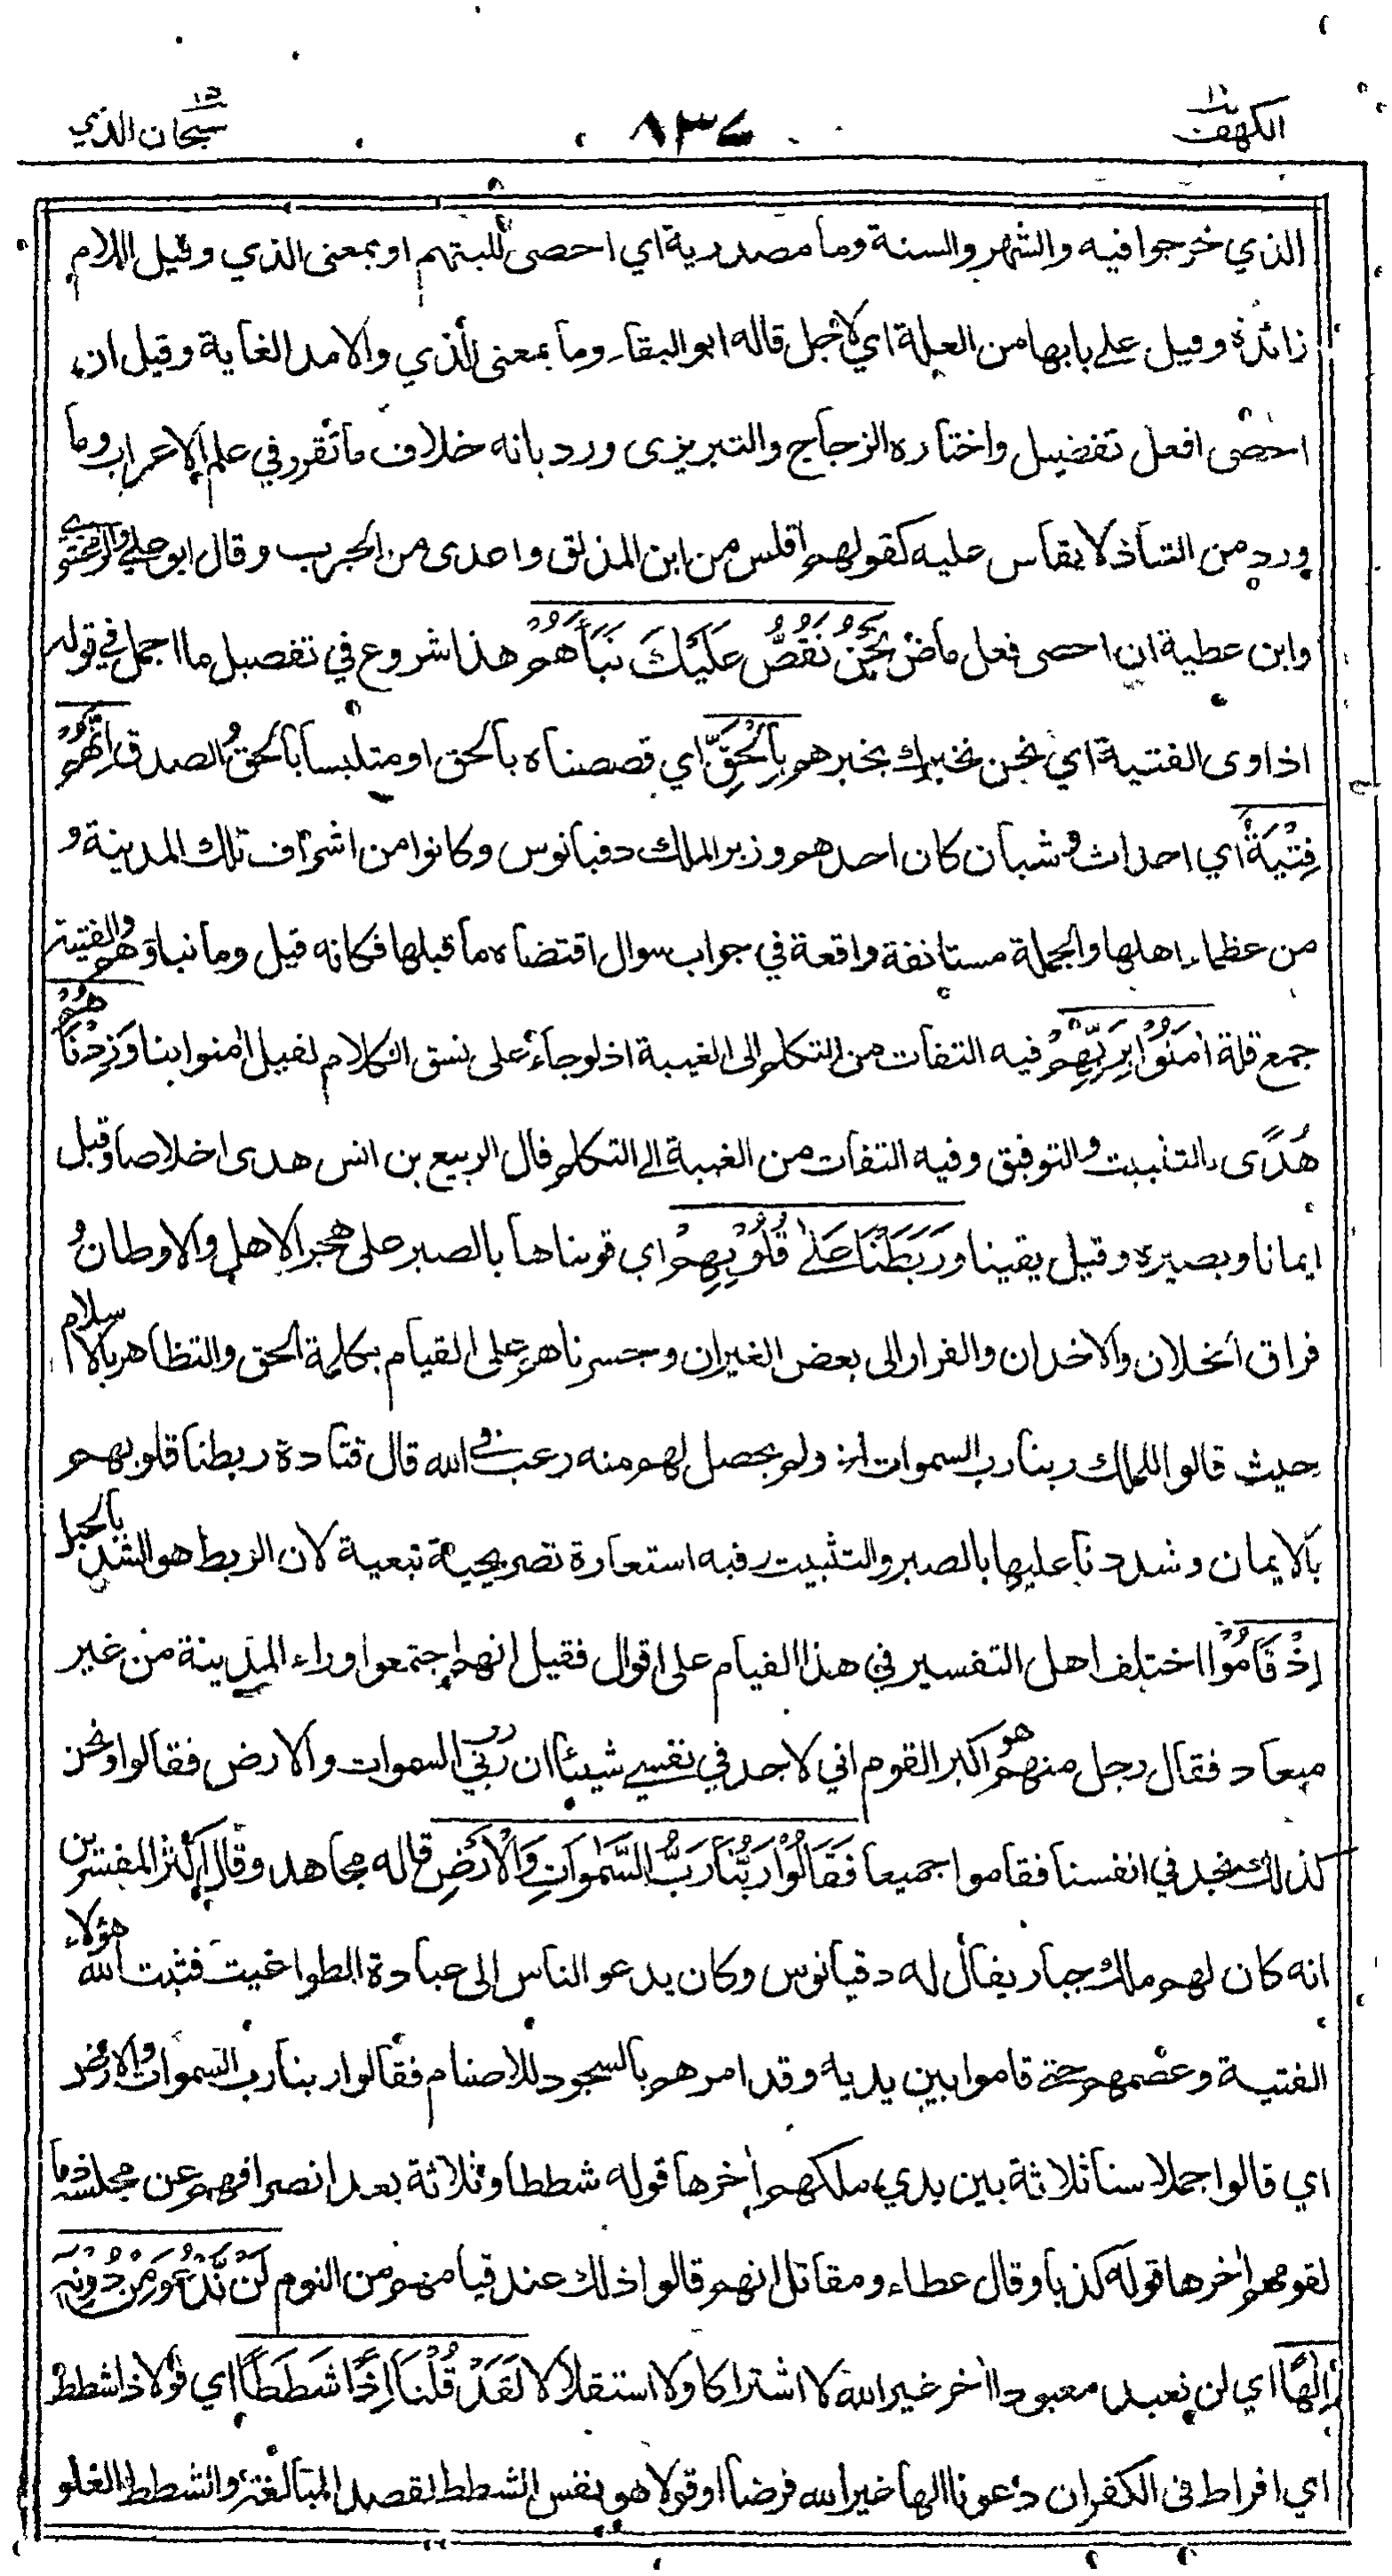 الكهف ١٨
٨٣٧
سبحان الذي ١٥
الذي خرجوا فيه والشهر والسنة وما مصدرية اي احصى للبثهم او بمعنى الذي وقيل اللام
زائدة وقيل على بابها من العلة اي لاجل قاله ابو البقاء وما بمعنى الذي والامد الغاية وقيل ان
احصى افعل تفضيل واختاره الزجاج والتبريزي ورد بانه خلاف ما تقرر في علم الاعراب وما
ورد من الشاذ لا يقاس عليه كقولهم افلس من ابن المذلق واعدى من الجرب وقال ابو علي والزمخشري
وابن عطية ان احصى فعل ماض نَحْنُ نَقُصُّ عَلَيْكَ نَبَأَهُمْ هذا شروع في تفصيل ما اجمل في قوله
اذ اوى الفتية اي نحن نخبرك بخبرهم بِالْحَقِّ اي قصصناه بالحق او متلبسا بالحق والصدق اِنَّهُمْ
فِتْيَةٌ اي احداث وشبان كان احدهم وزير الملك دقيانوس وكانوا من اشراف تلك المدينة و
من عظماء اهلها والجملة مستانفة واقعة في جواب سوال اقتضاه ما قبلها فكانه قيل وما نباؤهم والفتية
جمع قلة اٰمَنُوْا بِرَبِّهِمْ فيه التفات من التكلم الى الغيبة اذ لو جاء على نسق الكلام لقيل اٰمنوا بنا وَزِدْنٰهُمْ
هُدًى بالتثبيت والتوفيق وفيه التفات من الغيبة الى التكلم قال الربيع بن انس هدى اخلاصا وقيل
ايمانا وبصيرة وقيل يقينا وَرَبَطْنَا عَلٰى قُلُوْبِهِمْ اي قويناها بالصبر على هجر الاهل والاوطان و
فراق الخلان والاخدان والفرار الى بعض الغيران وجسرناهم على القيام بكلمة الحق والتظاهر بالاسلام
حيث قالوا للملك ربنا رب السموات الخ ولم يحصل لهم منه رعب في الله قال قتادة ربطنا قلوبهم
بالايمان وشددنا عليها بالصبر والتثبيت وفيه استعارة تصريحية تبعية لان الربط هو الشد بالحبل
اِذْ قَامُوْا اختلف اهل التفسير في هذا القيام على اقوال فقيل انهم اجتمعوا وراء المدينة من غير
ميعاد فقال رجل منهم هو اكبر القوم اني لاجد في نفسي شيئا ان ربي رب السموات والارض فقالوا ونحن
كذلك نجد في انفسنا فقاموا جميعا فَقَالُوْا رَبُّنَا رَبُّ السَّمٰوَاتِ وَالْاَرْضِ قاله مجاهد وقال اكثر المفسرين
انه كان لهم ملك جبار يقال له دقيانوس وكان يدعو الناس الى عبادة الطواغيت فثبت الله هؤلاء
الفتية وعصمهم حتى قاموا بين يديه وقد امرهم بالسجود للاصنام فقالوا ربنا رب السموات والارض
اي قالوا جملا ستا ثلاثة بين يدي ملكهم اٰخرها قوله شططا وثلاثة بعد انصرافهم عن مجلسه ذما
لقومهم اٰخرها قوله كذبا وقال عطاء ومقاتل انهم قالوا ذلك عند قيامهم من النوم لَنْ نَّدْعُوَ مِنْ دُوْنِهٖ
اِلٰهًا اي لن نعبد معبودا اٰخر غير الله لا اشتراكا ولا استقلالا لَقَدْ قُلْنَا اِذًا شَطَطًا اي قولا ذا شطط
اي افراط في الكفر ان دعونا الها غير الله فرضا او قولا هو نفس الشطط لقصد المبالغة والشطط الغلو